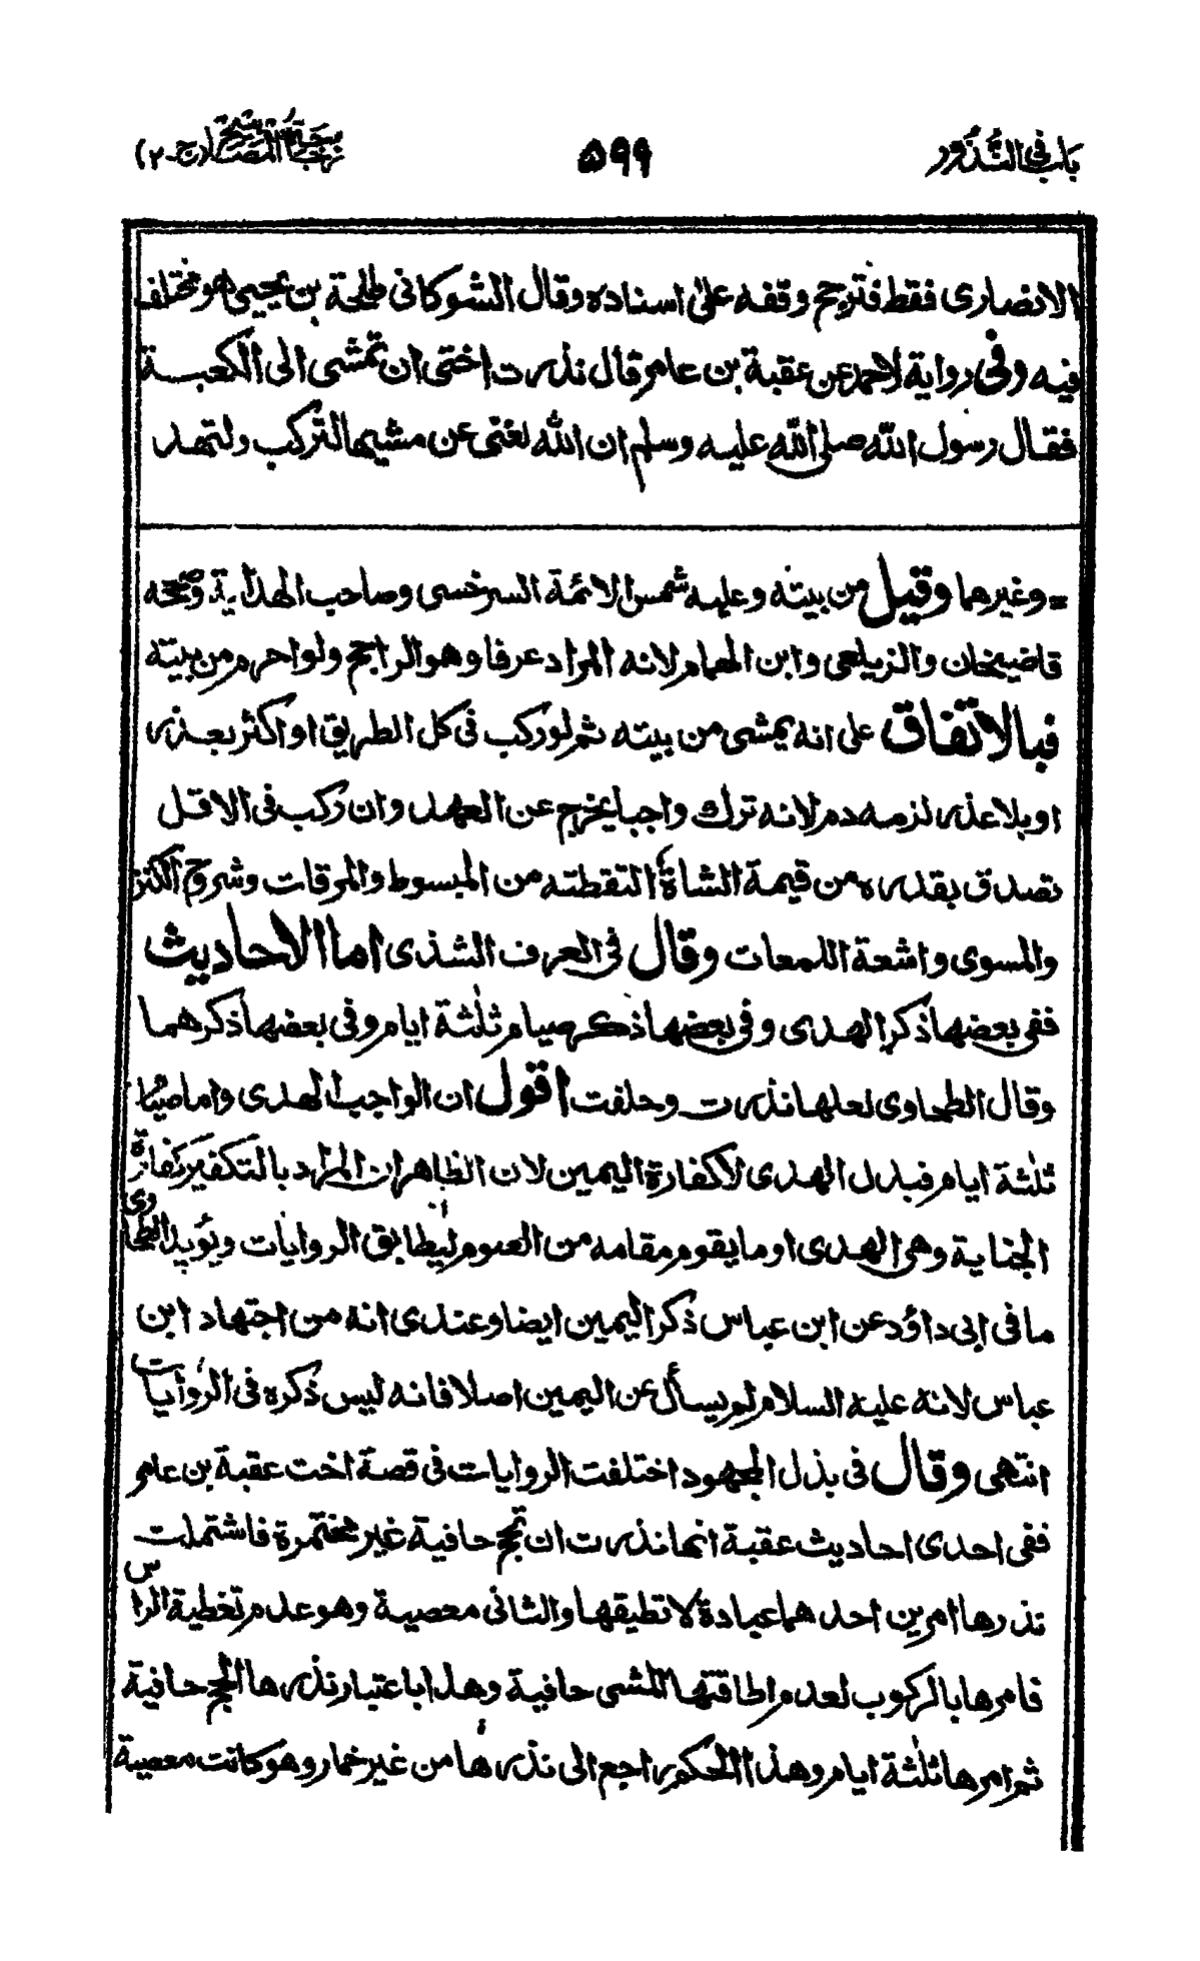 باب فی النُّذُور ٥٩٩ زجاجة المصابیح (ج-٢)
الانصاری فقط فترجح وقفه علیٰ اسناده وقال الشوکانی طلحة بن یحیی هو مختلف
فیه وفی روایة لاحمد عن عقبة بن عامر قال نذرت اختی ان تمشی الی الکعبة
فقال رسول اللّٰه صلی اللّٰه علیه وسلم ان اللّٰه لغنی عن مشیها لترکب ولتهد
= وغیرهما وقیل من بیته وعلیه شمس الائمة السرخسی وصاحب الهدایة وصححه
قاضیخان والزیلعی وابن الهمام لانه المراد عرفا وهو الراجح ولو احرم من بیته
فبالاتفاق علی انه یمشی من بیته ثم لو رکب فی کل الطریق او اکثر بعذر
او بلا عذر لزمه دم لانه ترك واجبا یخرج عن العهد وان رکب فی الاقل
تصدق بقدره من قیمة الشاة التقطته من المبسوط والمرقات وشروح الکنز
والمسوی واشعة اللمعات وقال فی العرف الشذی اما الاحادیث
ففی بعضها ذکر الهدی وفی بعضها ذکر صیام ثلٰثة ایام وفی بعضها ذکرهما
وقال الطحاوی لعلها نذرت وحلفت اقول ان الواجب الهدی واما صیام
ثلٰثة ایام فبدل الهدی لا کفارة الیمین لان الظاهر ان المراد بالتکفیر کفارة
الجنایة وهی الهدی او ما یقوم مقامه من الصوم لیطابق الروایات ویؤید الطحاوی
ما فی ابی داؤد عن ابن عباس ذکر الیمین ایضا وعندی انه من اجتهاد ابن
عباس لانه علیه السلام لم یسأل عن الیمین اصلا فانه لیس ذکره فی الروایات
انتهی وقال فی بذل المجهود اختلفت الروایات فی قصة اخت عقبة بن عامر
ففی احدی احادیث عقبة انها نذرت ان تحج حافیة غیر مختمرة فاشتملت
نذرها امرین احدهما عبادة لا تطیقها والثانی معصیة وهو عدم تغطیة الراس
فامرها بالرکوب لعدم اطاقتها للمشی حافیة وهذا باعتبار نذرها الحج حافیة
ثم امرها ثلٰثة ایام وهذا الحکم راجع الی نذرها من غیر خمار وهو کانت معصیة